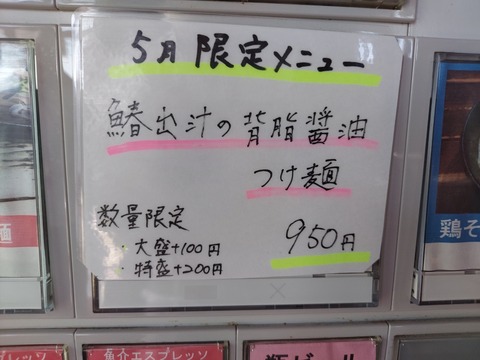 5月限定メニュー
鰆出汁の背脂醤油
つけ麺
数量限定
950円
・大盛+100円
・特盛+200円
麺
鶏そ
エスプレッソ
魚介エスプレッソ